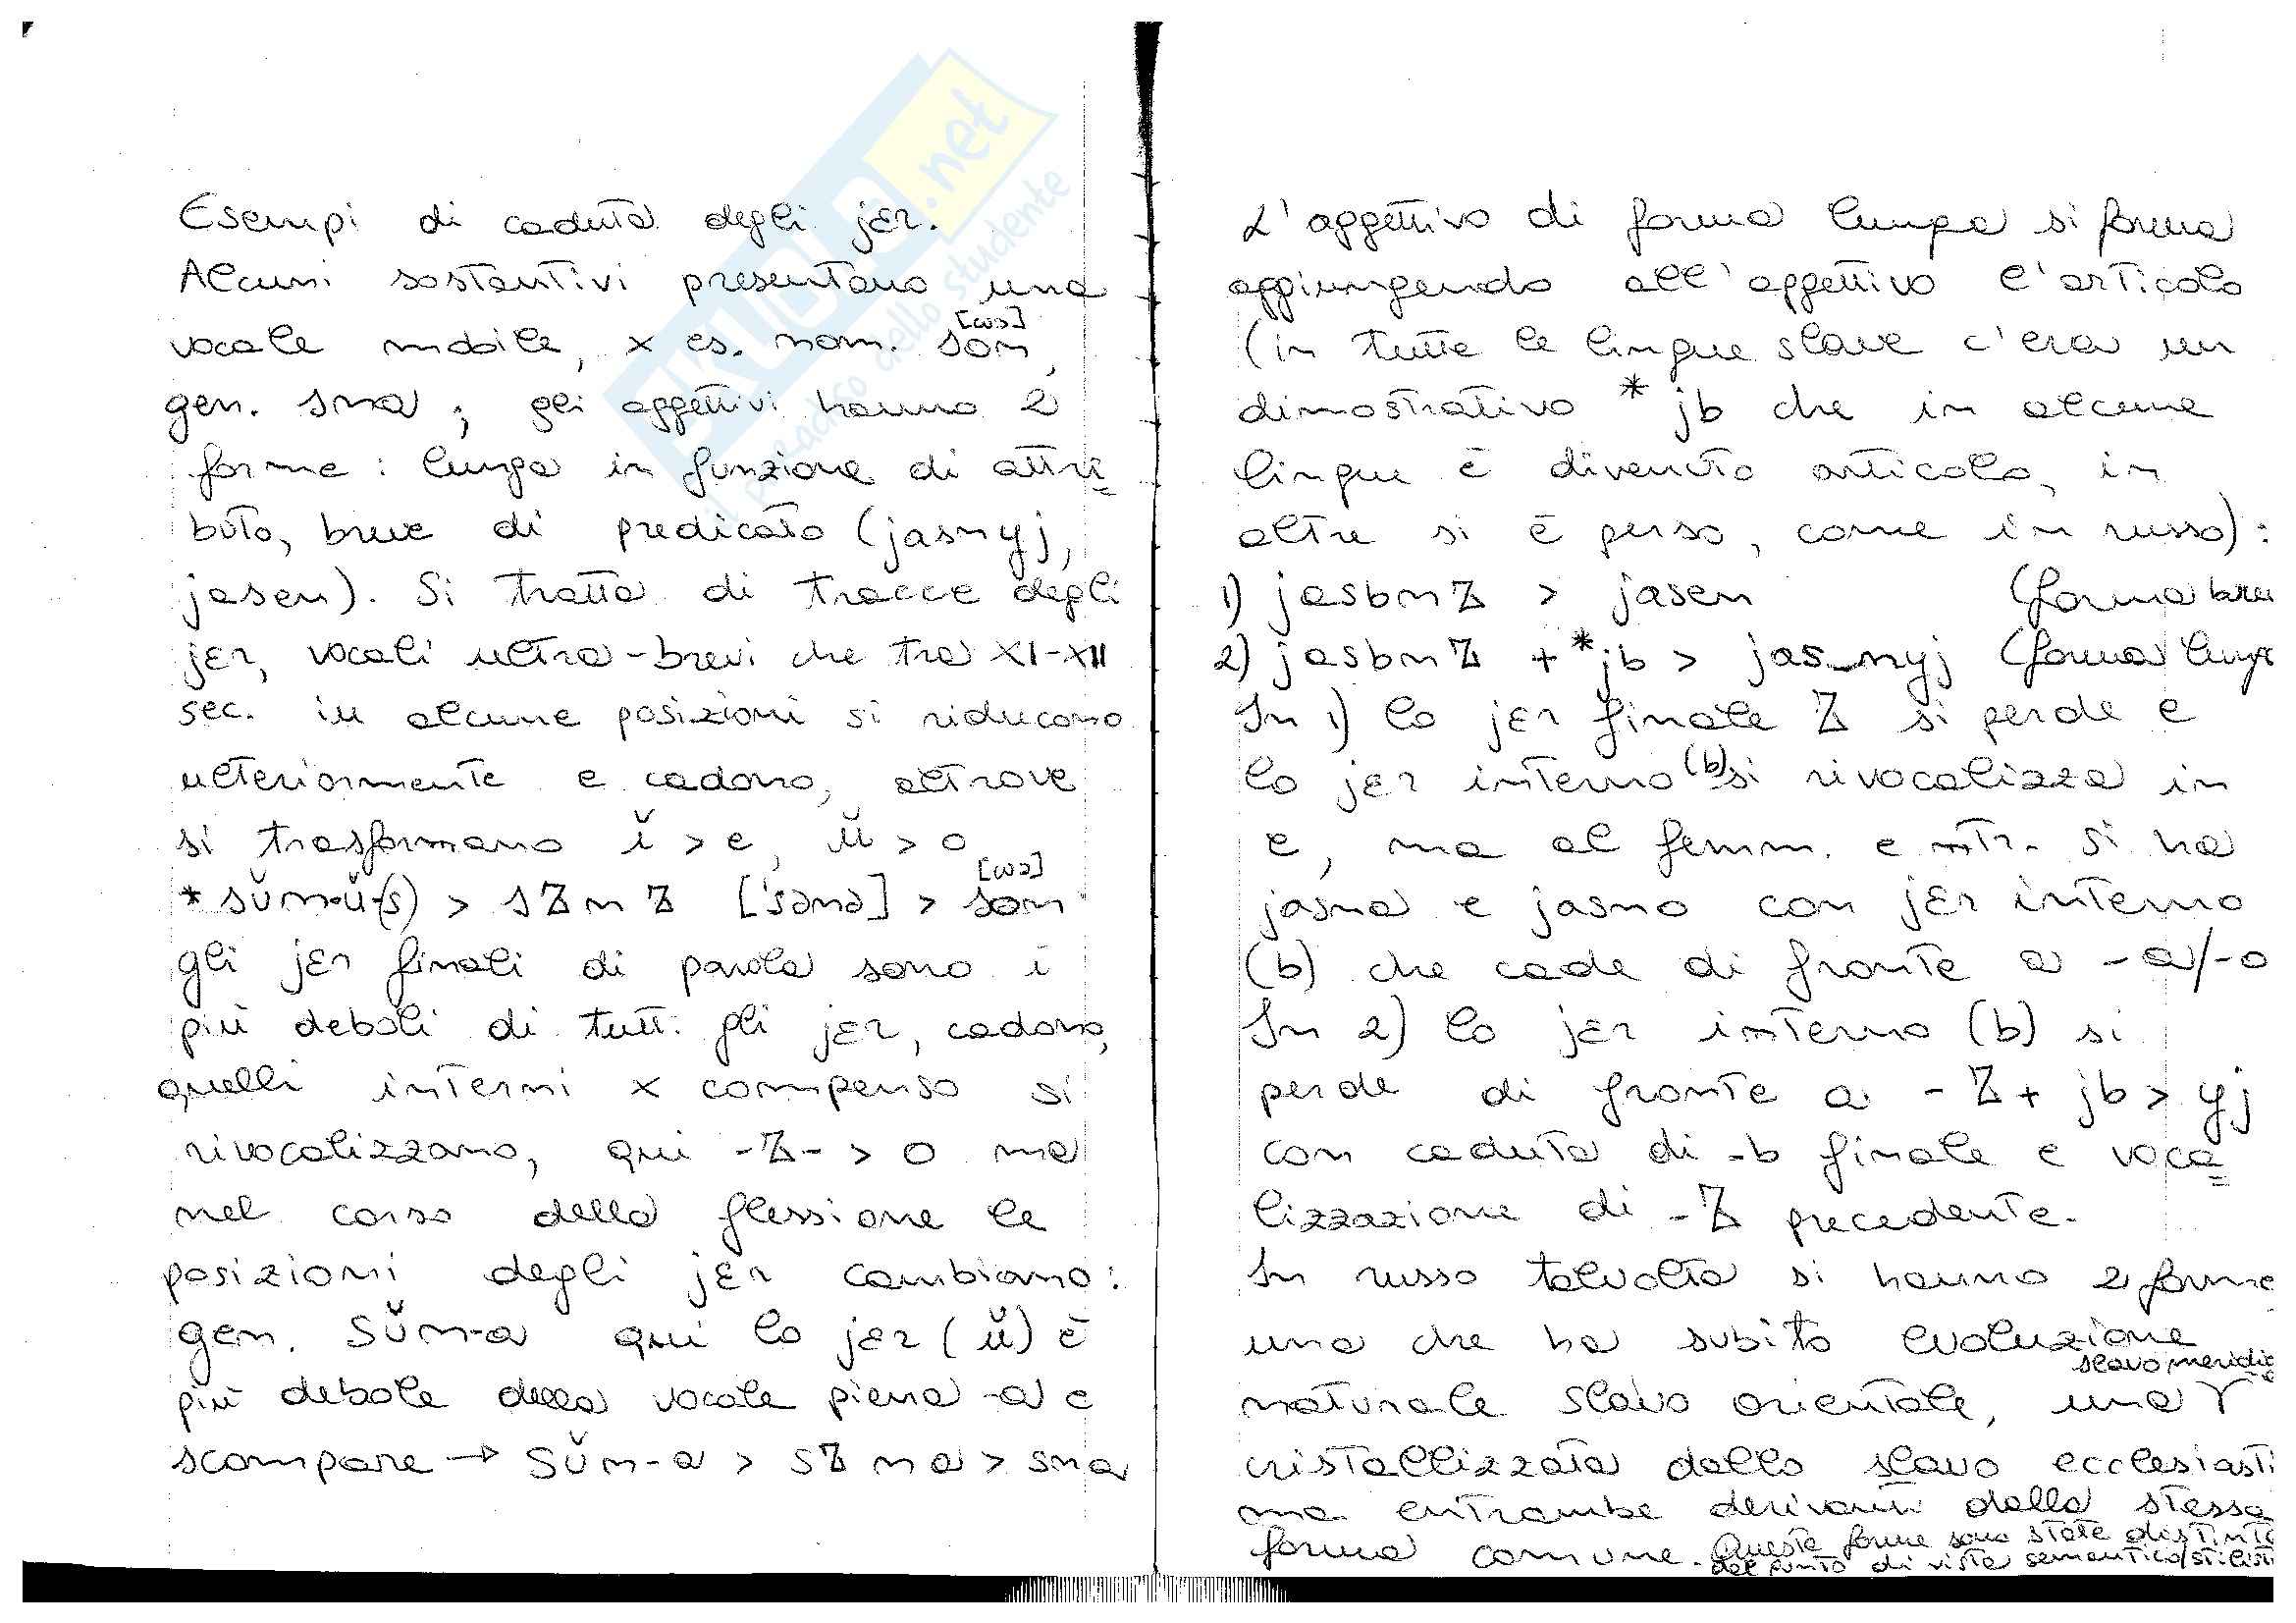 Esempi di caduta degli jer.
Alcuni sostantivi presentano una
vocale mobile, x es. nom. son,
gen. sna ; gli aggettivi hanno 2
forme : lunga in funzione di attri
buto, breve di predicato (jasnyj,
jasen). Si tratta di tracce degli
jer, vocali ultra-brevi che tra XI-XII
sec. in alcune posizioni si riducono
ulteriormente e cadono, altrove
si trasformano ĭ > e, ŭ > o
* sŭn-ŭ-(s) > sъnъ ['sənə] > son
gli jer finali di parola sono i
più deboli di tutti gli jer, cadono,
quelli interni x compenso si
rivocalizzano, qui -ъ- > o ma
nel corso della flessione le
posizioni degli jer cambiano:
gen. sŭn-a qui lo jer (ŭ) è
più debole della vocale piena -a e
scompare → sŭn-a > sъna > sna
L'aggettivo di forma lunga si forma
aggiungendo all'aggettivo l'articolo
(in tutte le lingue slave c'era un
dimostrativo *jь che in alcune
lingue è divenuto articolo, in
altre si è perso, come in russo):
1) jasьnъ > jasen (forma breve
2) jasьnъ + *jь > jas_nyj (forma lunga
In 1) lo jer finale ъ si perde e
lo jer interno (ь) si rivocalizza in
e, ma al femm. e ntr. si ha
jasna e jasno con jer interno
(ь) che cade di fronte a -a/-o
In 2) lo jer interno (ь) si
perde di fronte a -ъ+ jь > yj
con caduta di -ь finale e voca
lizzazione di -ъ precedente.
In russo talvolta si hanno 2 forme
una che ha subito evoluzione
slavo meridio
naturale slavo orientale, una
cristallizzata dallo slavo ecclesiasti
ma entrambe derivanti dalla stessa
forma comune. Queste forme sono state distinte
dal punto di vista semantico/stilisti
SKUOLA.net
il paradiso dello studente